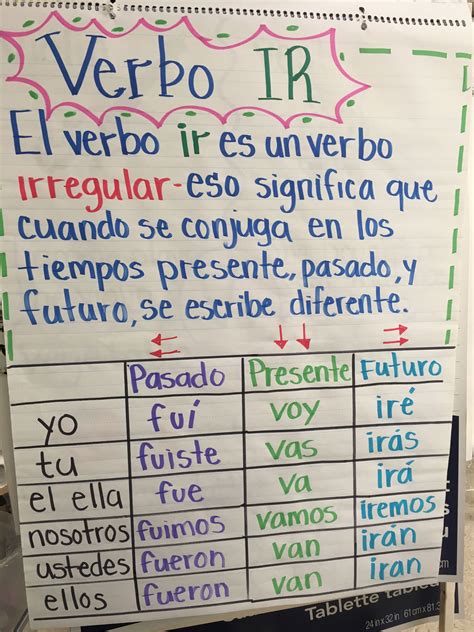 Verbo IR
El verbo ir es un verbo
irregular-eso significa que
cuando se conjuga en los
tiempos presente, pasado, y
futuro, se escribe diferente.
Pasado Presente Futuro
yo fuí voy iré
tu fuiste vas irás
el ella fue va irá
nosotros fuimos vamos iremos
ustedes fueron van irán
ellos fueron van iran
Tablette
24 in x 32 in